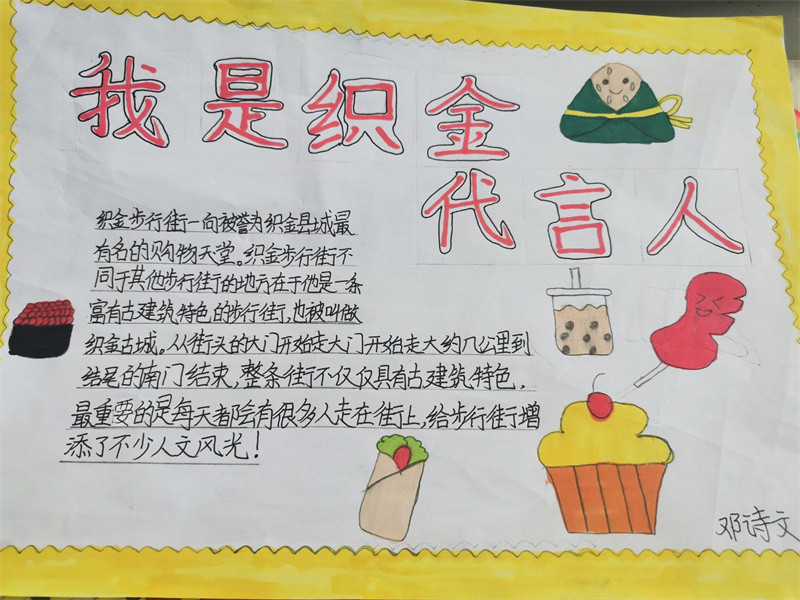 我是织金
代言人
织金步行街一向被誉为织金县城最
有名的购物天堂。织金步行街不
同于其他步行街的地方在于他是一条
富有古建筑特色的步行街,也被叫做
织金古城。从街头的大门开始走大门开始走大约几公里到
结尾的南门结束,整条街不仅仅具有古建筑特色,
最重要的是每天都会有很多人走在街上,给步行街增
添了不少人文风光!
邓诗文